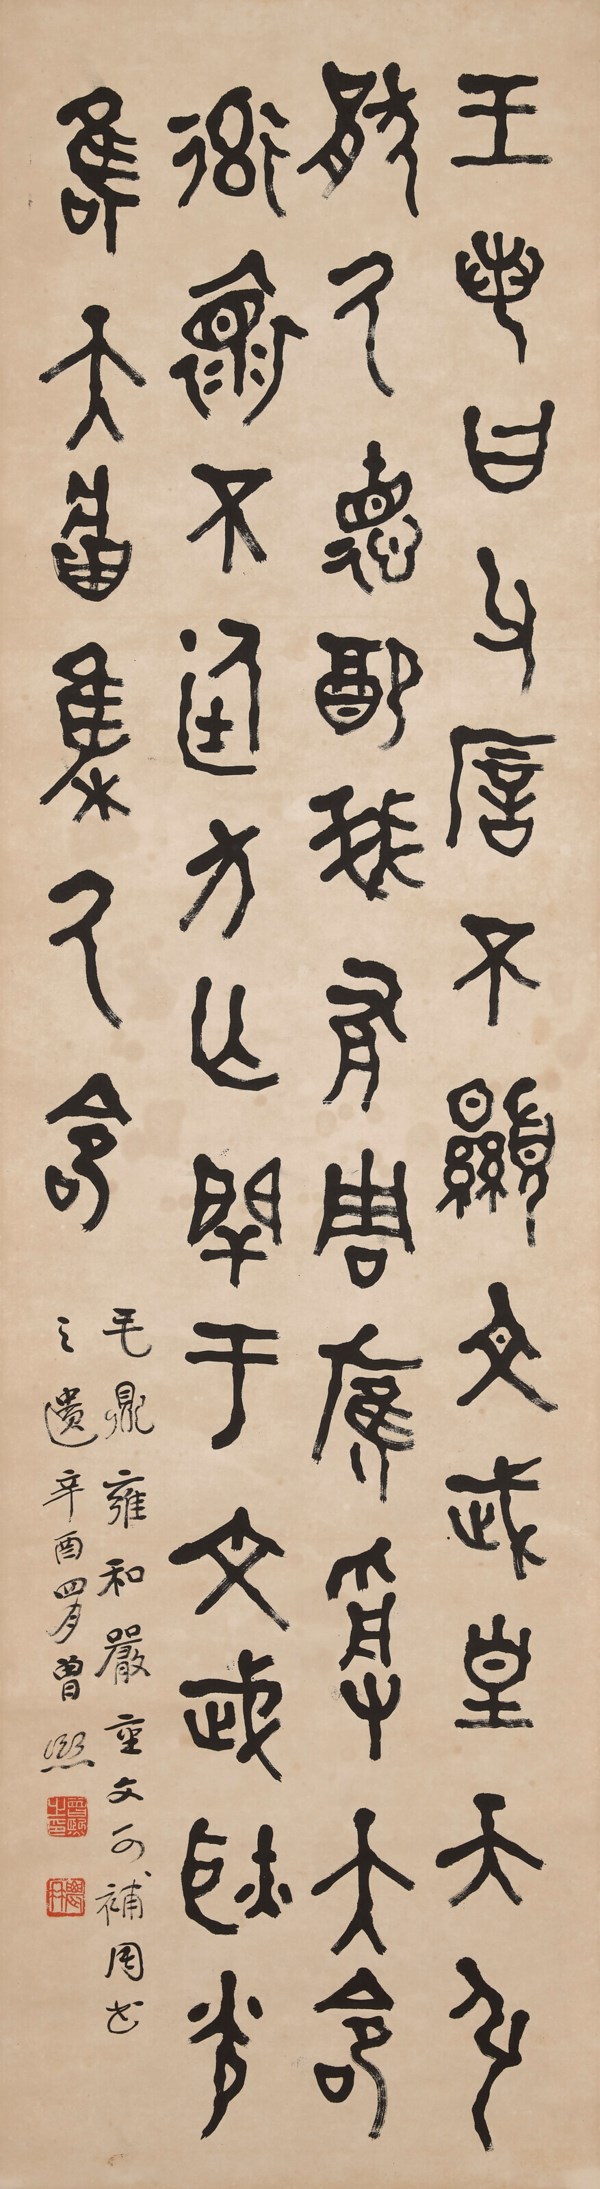 王若曰父㕌不顯文武皇天引
猒厥德配我有周膺受大命
率懷不廷方亡閈于文武耿光
唯天將集厥命
毛鼎雍和嚴重文可補周書
之遺辛酉四月曾熙
曾熙之印
農髯